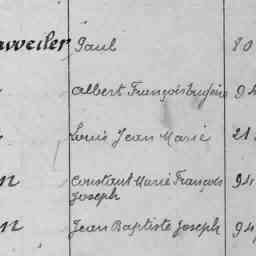 weiler Paul 80
Albert François Eugène 94
Louis Jean Marie 21
n Constant Marie François 94
Joseph
n Jean Baptiste Joseph 94